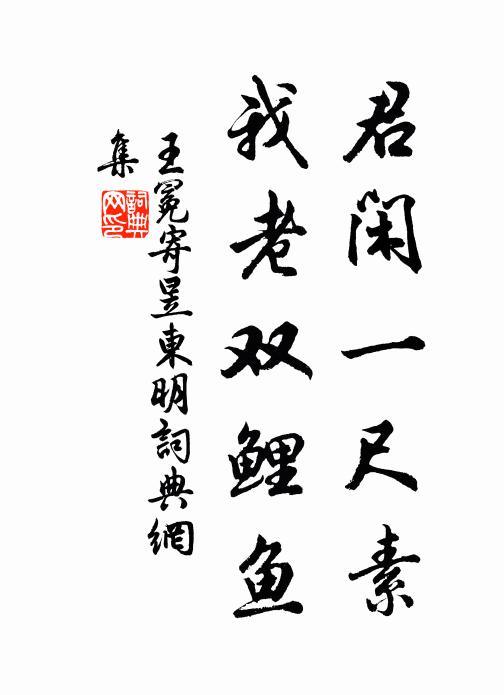 君闲一尺素
我老双鲤鱼
王冕寄昱東明詞典網
集
詞典
网印